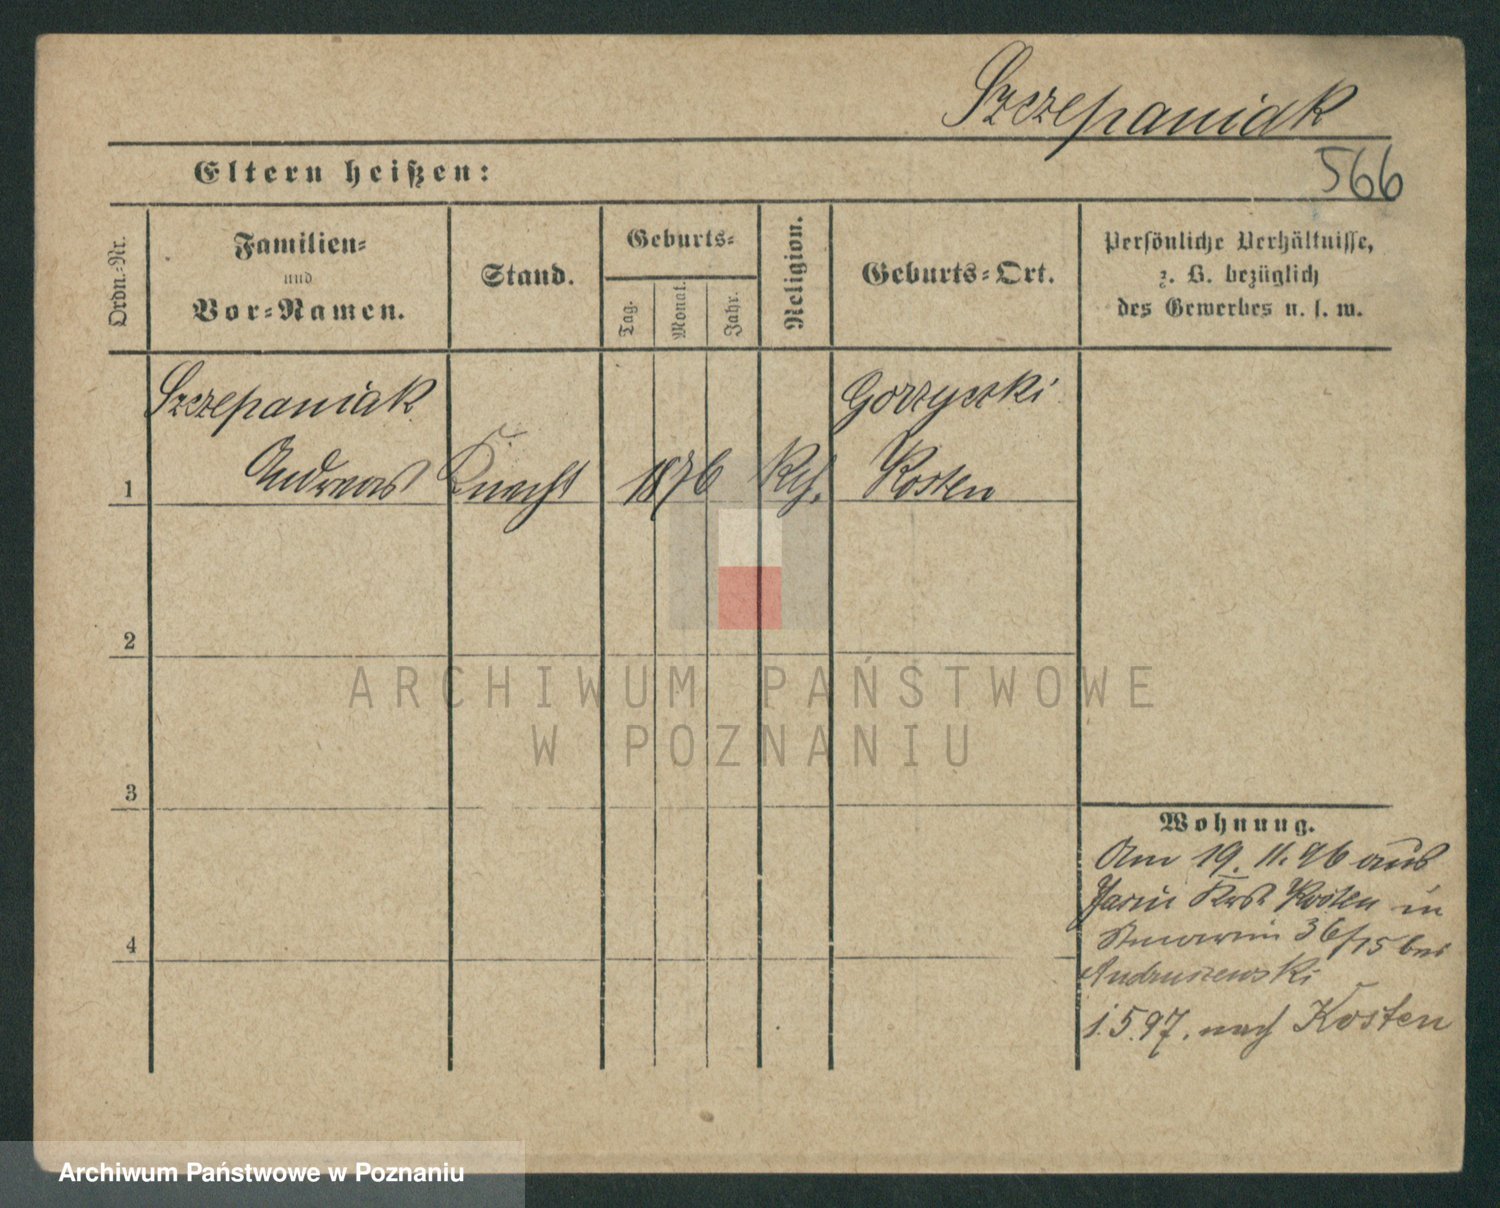 Szczepaniak
566
Eltern heißen:
Ordn.-Nr.
Familien-
und
Vor-Namen.
Stand.
Geburts-
Tag.
Monat.
Jahr.
Religion.
Geburts-Ort.
Persönliche Verhältnisse,
z. B. bezüglich
des Gewerbes u. s. w.
Szczepaniak Gorzyczki
1 Andreas Knecht 1876 Kth. Kosten
2
3
4
Wohnung.
Am 19. 11. 96 aus
Kosten in
36/15 bei
Andruszewski
1.5.97. nach Kosten
ARCHIWUM PAŃSTWOWE
W POZNANIU
Archiwum Państwowe w Poznaniu